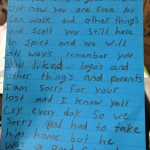 but now you are free. you
can walk and other thing's
and Scott you Still here
in Spirt and we will
all ways remember you
you liked logo's and
other thing's and parents
I am sorry for your
lost and I know yall
Cry every day So we
Sorry god had to take
him home but he
was a good